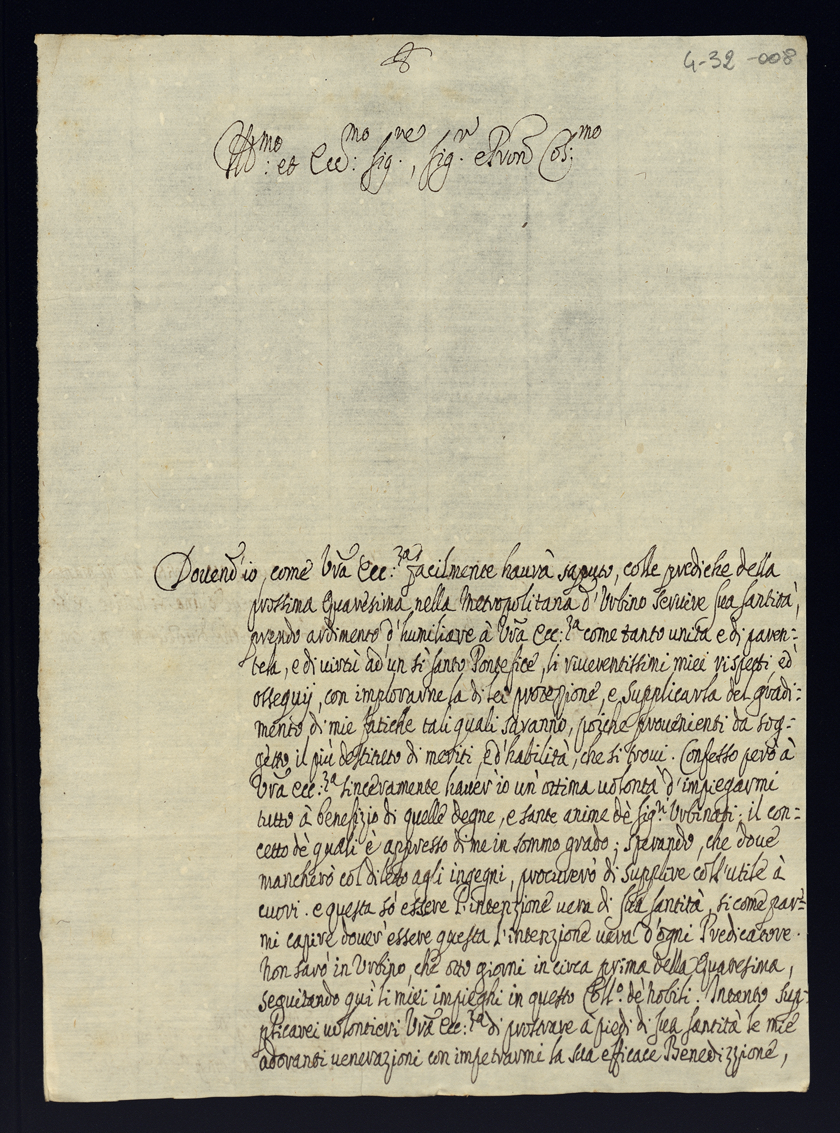 4-32-008
Ill:mo et Ecc:mo Sig.re, Sig.r e Pron Col:mo
Douend'io, come Vra Ecc:za facilmente haurà saputo, colle prediche della
prossima Quaresima nella Metropolitana d'Urbino seruire Sua Santità,
prendo ardimento d'humiliare à Vra Ecc:za come tanto unita e di paren:=
tela, e di uirtù ad un sì santo Pontefice, li riuerentissimi miei rispetti ed
ossequij, con implorarne la di lei protezzione, e supplicarla del gradi=
mento di mie fatiche tali quali saranno, poiche prouenienti da sog=
getto il più destituto di meriti, ed'habilità, che si troui. Confesso però à
Vra Ecc:za sinceramente hauer'io un'ottima uolontà d'impiegarmi
tutto à benefizio di quelle degne, e sante anime dè Sig:ri Urbinati, il con=
cetto de quali è appresso di me in sommo grado; sperando, che doue
mancherò col diletto agli ingegni, procurerò di supplire coll'utile à
cuori. e questa sò essere l'intenzione uera di Sua Santità, si come par=
mi capire douer'essere questa l'intenzione uera d'ogni Predicatore.
Non sarò in Urbino, che otto giorni in circa prima della Quaresima,
seguitando quì li miei impieghi in questo Coll:o de' Nobili. Intanto sup=
plicarei uolontieri Vra Ecc:za di portare à piedi di Sua Santità le mie
adoranti uenerazioni con impetrarmi la sua efficace Benedizzione,